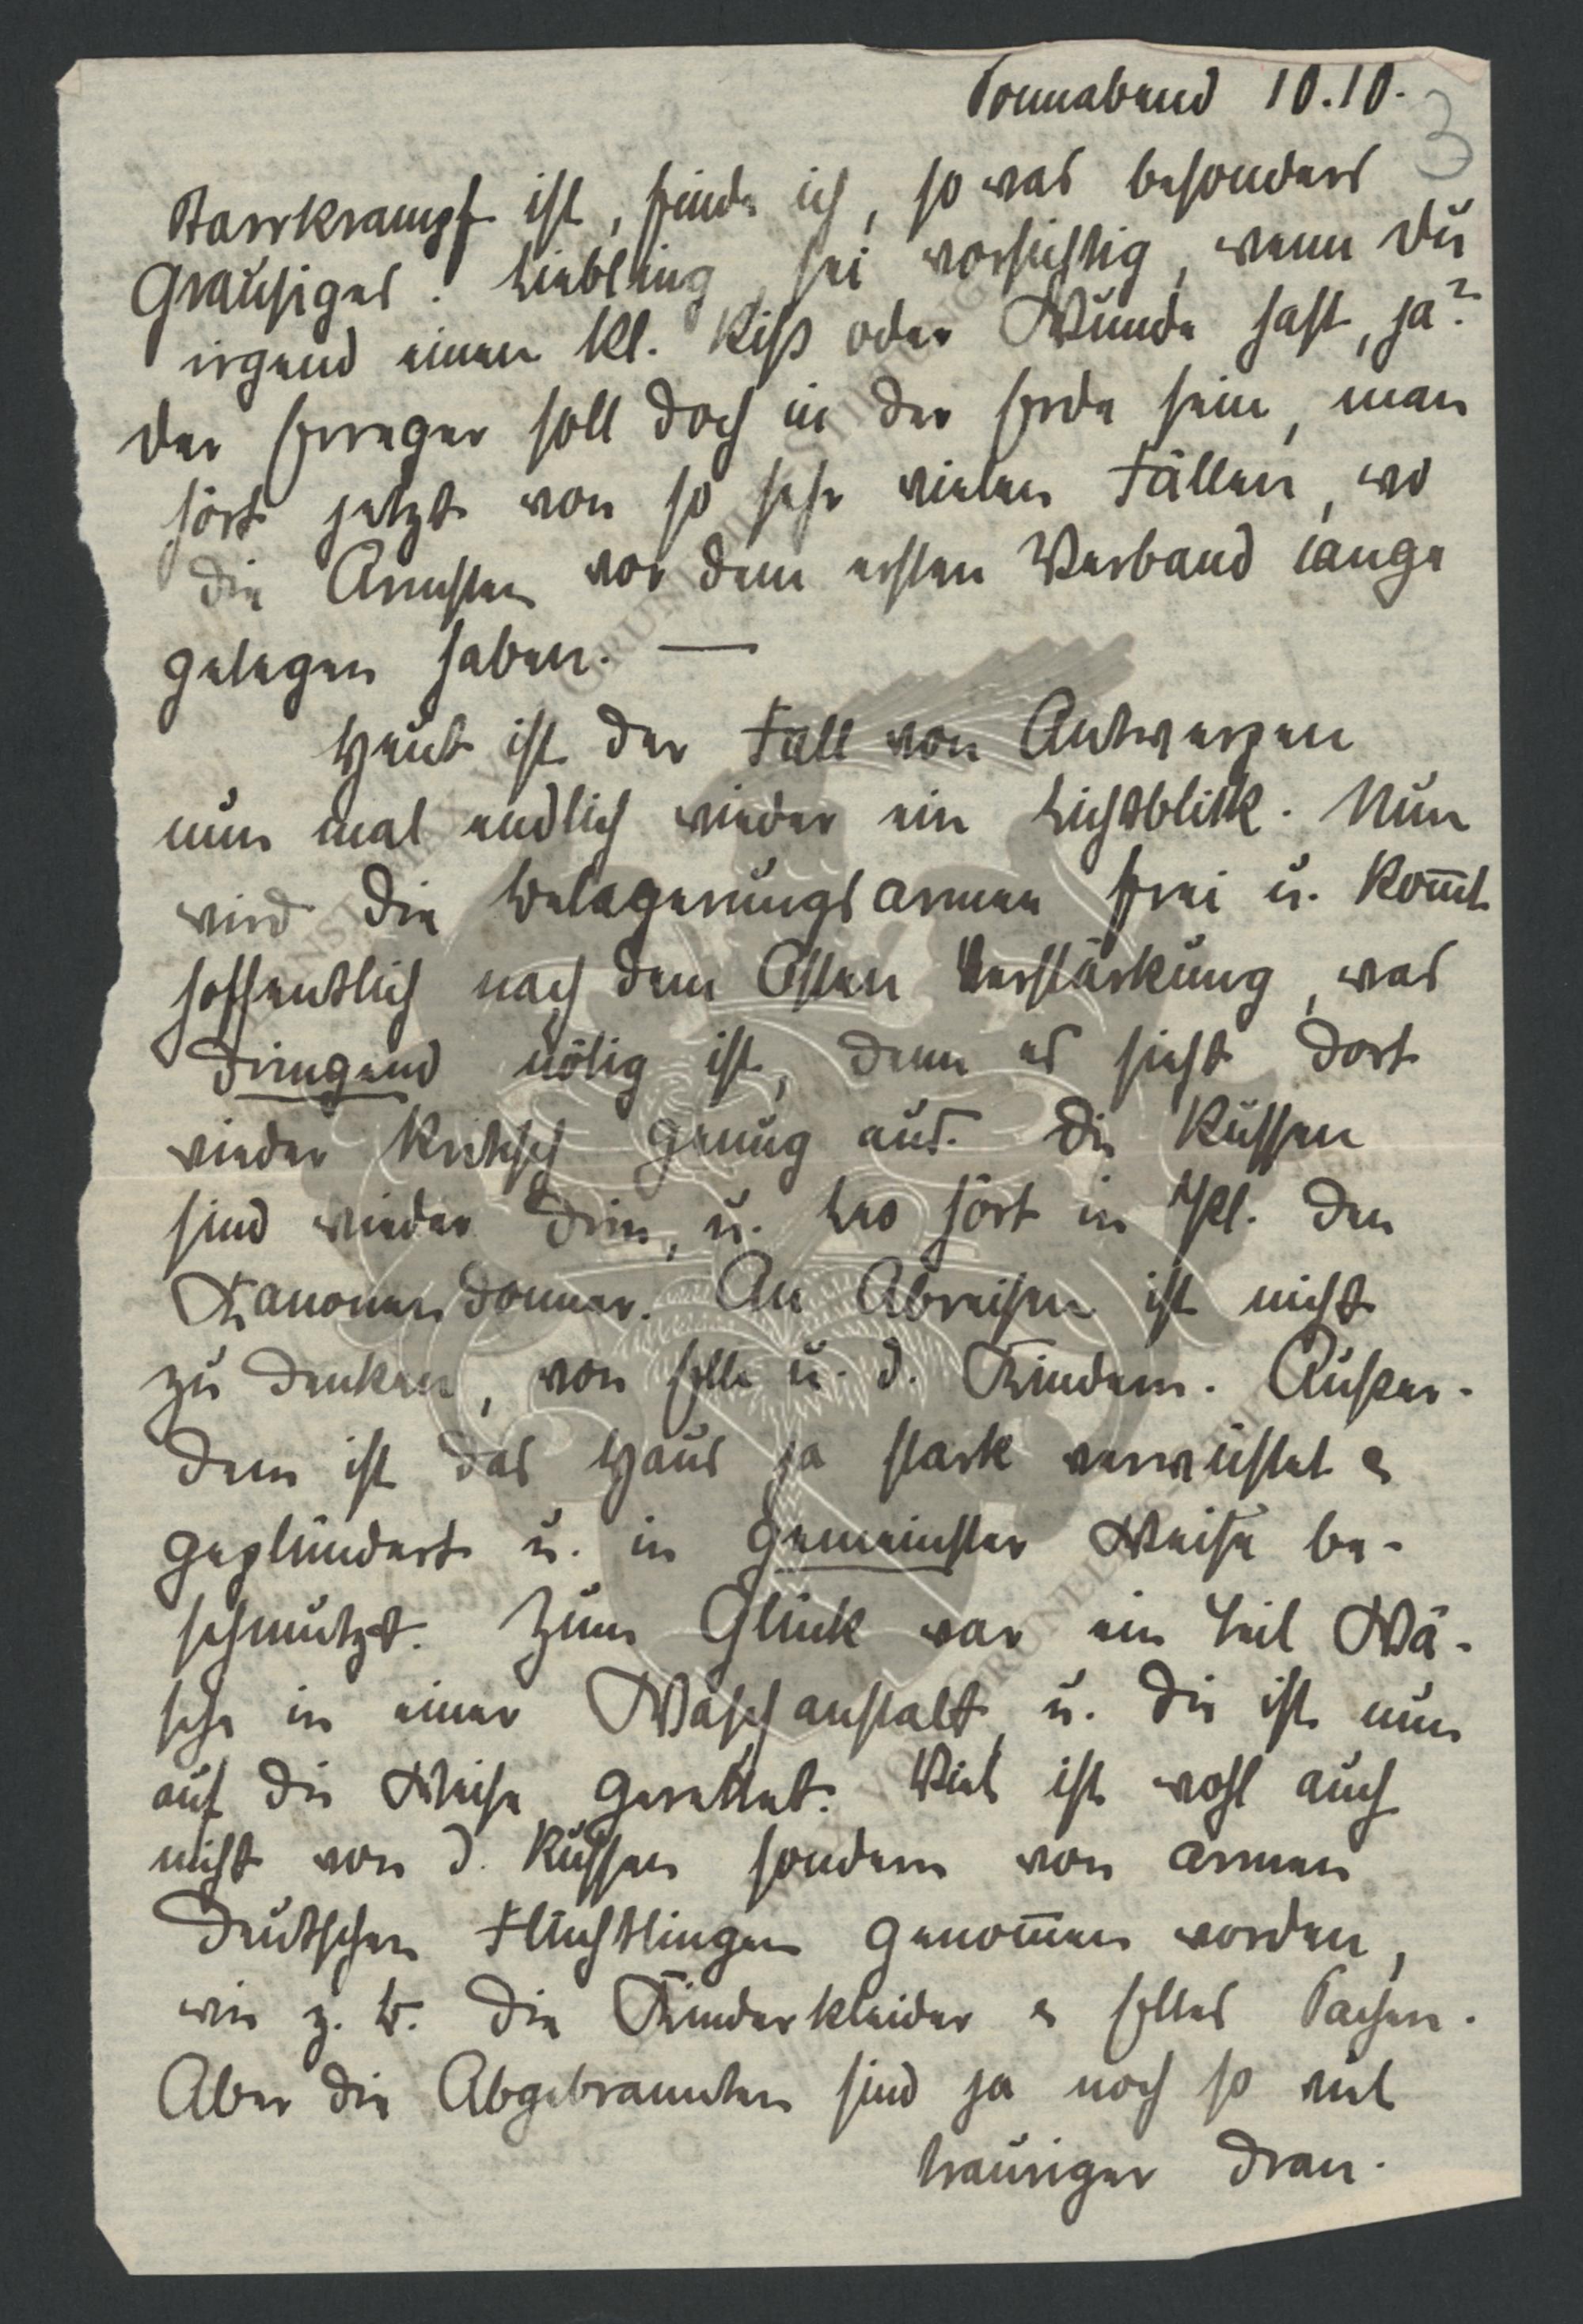 Sonnabend 10.10.
3
Starrkrampf ist, finde ich, so was besonders
Grausiges! Liebling, sei vorsichtig, wenn Du
irgend einen kl. Riß oder Wunde hast, ja?
Der Erreger soll doch in der Erde sein, man
hört jetzt von so sehr vielen Fällen, wo
die Ärmsten vor dem ersten Verband lange
gelegen haben. —
Heut ist der Fall von Antwerpen
nun mal endlich wieder ein Lichtblick. Nun
wird die Belagerungsarmee frei u. kom̅t
hoffentlich nach dem Osten Verstärkung, was
dringend nötig ist, denn es sieht dort
wieder kritisch genug aus. Die Russen
sind wieder drin, u. Leo hört in die
Kanonendonner. An Abreisen ist nicht
zu denken, von Elle u. d. Kindern. Außer-
dem ist das Haus ja stark verwüstet &
geplündert u. in gemeinster Weise be-
schmutzt. Zum Glück war ein Teil Wä-
sche in einer Waschanstalt, u. die ist nun
auf die Weise gerettet. Viel ist wohl auch
nicht von d. Russen sondern von armen
deutschen Flüchtlingen genom̅en worden,
wie z. B. die Kinderkleider & Elles Sachen.
Aber die Abgebrannten sind ja noch so viel
trauriger dran.